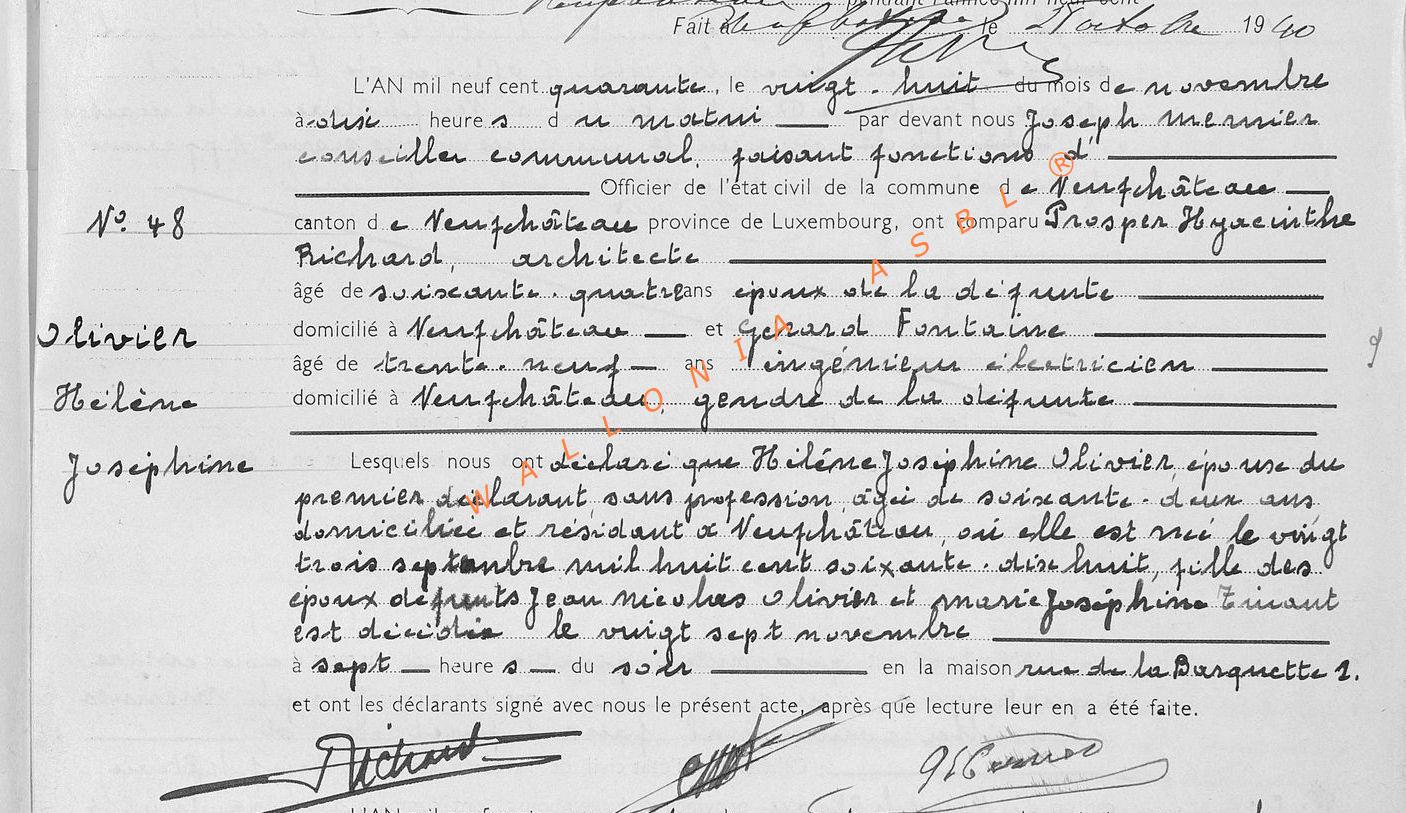 pendant l'année mil neuf cent
Fait à Neufchâteau le 21 octobre 1940
L'AN mil neuf cent quarante, le vingt-huit du mois de novembre
à dix heures du matin par devant nous Joseph
conseiller communal, faisant fonctions d'
Officier de l'état civil de la commune de Neufchâteau
N° 48
canton de Neufchâteau province de Luxembourg, ont comparu Prosper Hyacinthe
Richard, architecte
âgé de soixante-quatre ans époux de la défunte
Olivier
domicilié à Neufchâteau et Gérard Fontaine
âgé de trente-neuf ans ingénieur électricien
Hélène
domicilié à Neufchâteau, gendre de la défunte
Joséphine
Lesquels nous ont déclaré que Hélène Joséphine Olivier, épouse du
premier déclarant, sans profession, âgée de soixante-deux ans
domiciliée et résidant à Neufchâteau, où elle est née le vingt
trois septembre mil huit cent soixante-dix huit, fille des
époux défunts Jean Nicolas Olivier et Marie Joséphine
est décédée le vingt sept novembre
à sept heures du soir en la maison rue de la Barquette 1.
et ont les déclarants signé avec nous le présent acte, après que lecture leur en a été faite.
Richard
WALLONIA ASBL ®